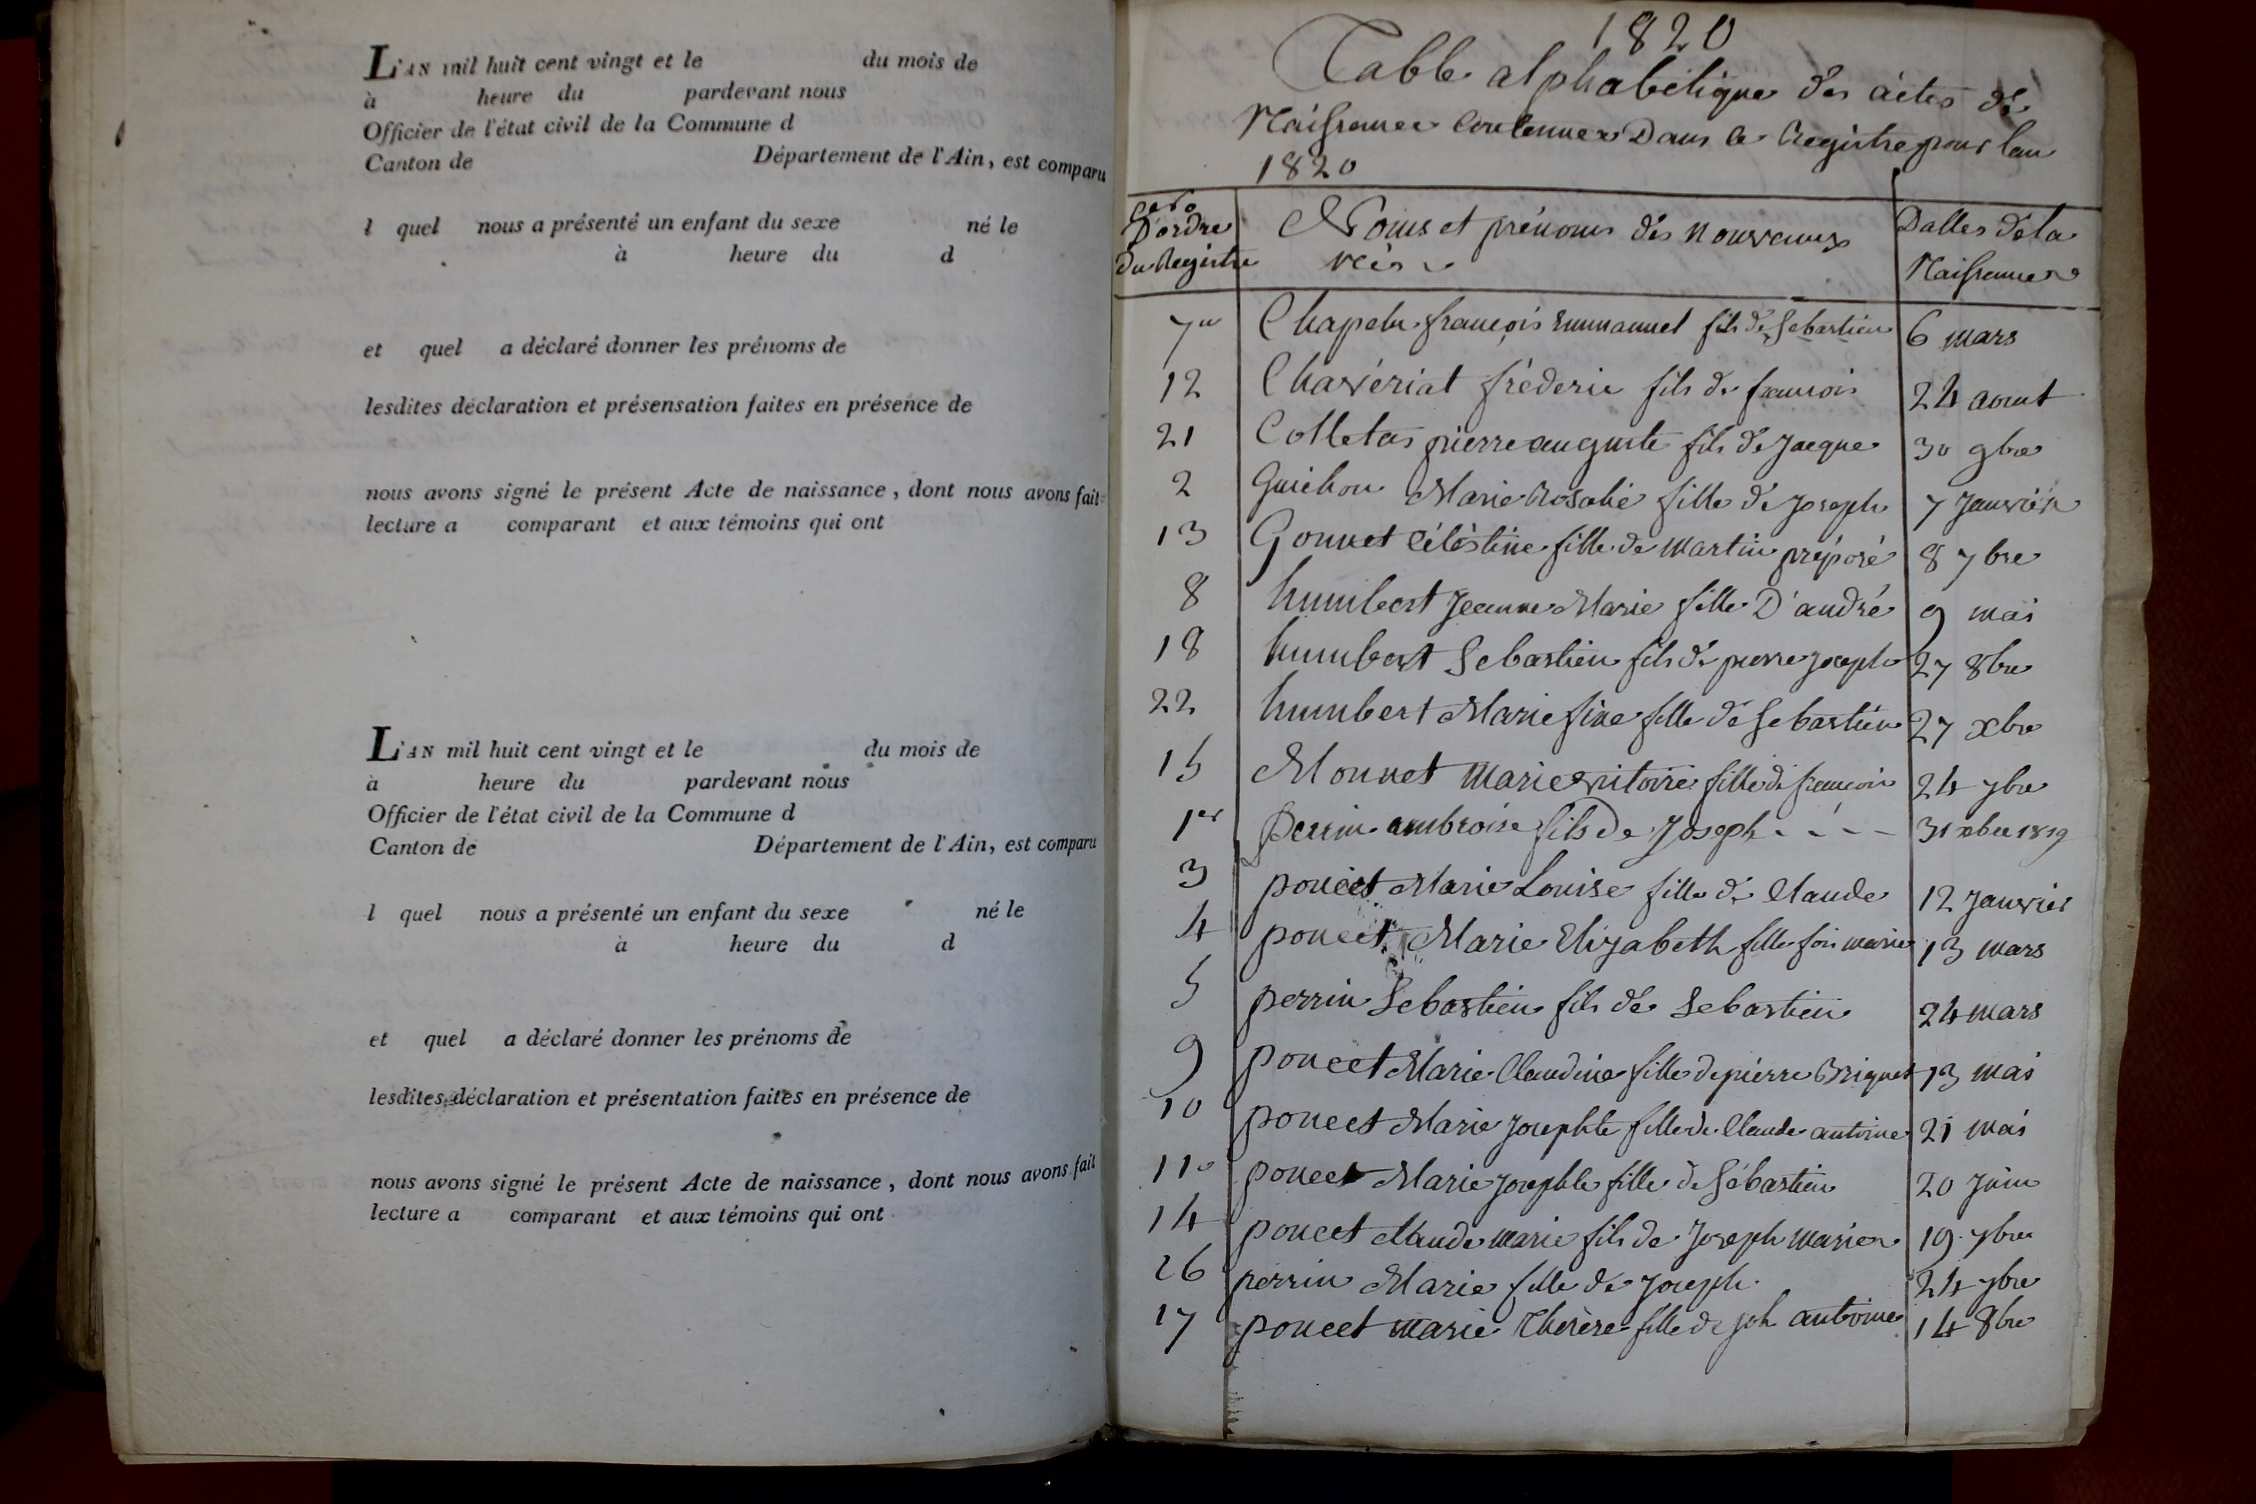 L'AN mil huit cent vingt et le du mois de
à heure du pardevant nous
Officier de l'état civil de la Commune d
Canton de Département de l'Ain, est comparu
l quel nous a présenté un enfant du sexe né le
à heure du d
et quel a déclaré donner les prénoms de
lesdites déclaration et présensation faites en présence de
nous avons signé le présent Acte de naissance, dont nous avons fait
lecture a comparant et aux témoins qui ont
L'AN mil huit cent vingt et le du mois de
à heure du pardevant nous
Officier de l'état civil de la Commune d
Canton de Département de l'Ain, est comparu
l quel nous a présenté un enfant du sexe né le
à heure du d
et quel a déclaré donner les prénoms de
lesdites déclaration et présentation faites en présence de
nous avons signé le présent Acte de naissance, dont nous avons fait
lecture a comparant et aux témoins qui ont
1820
Table alphabétique des actes de
Naissances contenues Dans le Registre pour l'an
1820
D'ordre Noms et prénoms des nouveaux Dattes de la
du Registre nés Naissance
7 françois Emmanuel fils de Sebastien 6 mars
12 Chavériat fréderic fils de francois 24 aout
21 Colletas pierre auguste fils de Jacque 30 9bre
2 Guichon Marie Rosalie fille de Joseph 7 Janvier
13 Gonnet Céléstine fille de Martin préposé 8 7bre
8 humbert Jeanne Marie fille D'andré 9 mai
18 humbert Sebastien fils de pierre joseph 27 8bre
22 humbert Marie fine fille de Sebastien 27 xbre
15 Monnet Marie vitoire fille de francois 24 7bre
1er Perrin ambroise fils de Joseph - - - - 31 xbre 1819
3 poncet Marie Louise fille de Claude 12 Janvier
4 poncet Marie Elizabeth fille fois marie 13 mars
5 perrin Sebastien fils de Sebastien 24 mars
9 poncet Marie Claudine fille de pierre Briquet 13 mai
10 poncet Marie Josephte fille de Claude antoine 21 mai
11 poncet Marie Josephte fille de Sébastien 20 Juin
14 poncet Claude marie fils de Joseph Marie 19 7bre
26 perrin Marie fille de Joseph. 24 7bre
17 poncet marie Thérèse fille de Joh antoine 14 8bre